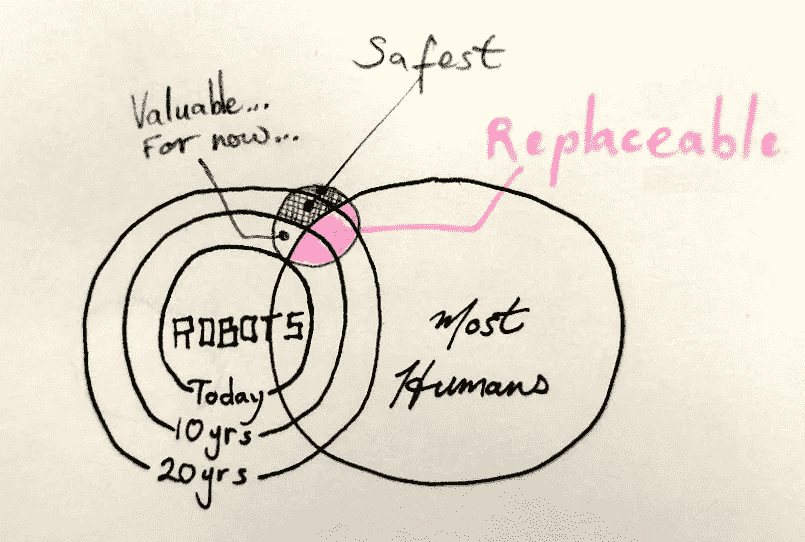 Safest
Valuable...
For now...
Replaceable
ROBOTS
Today
10 yrs
20 yrs
Most
Humans